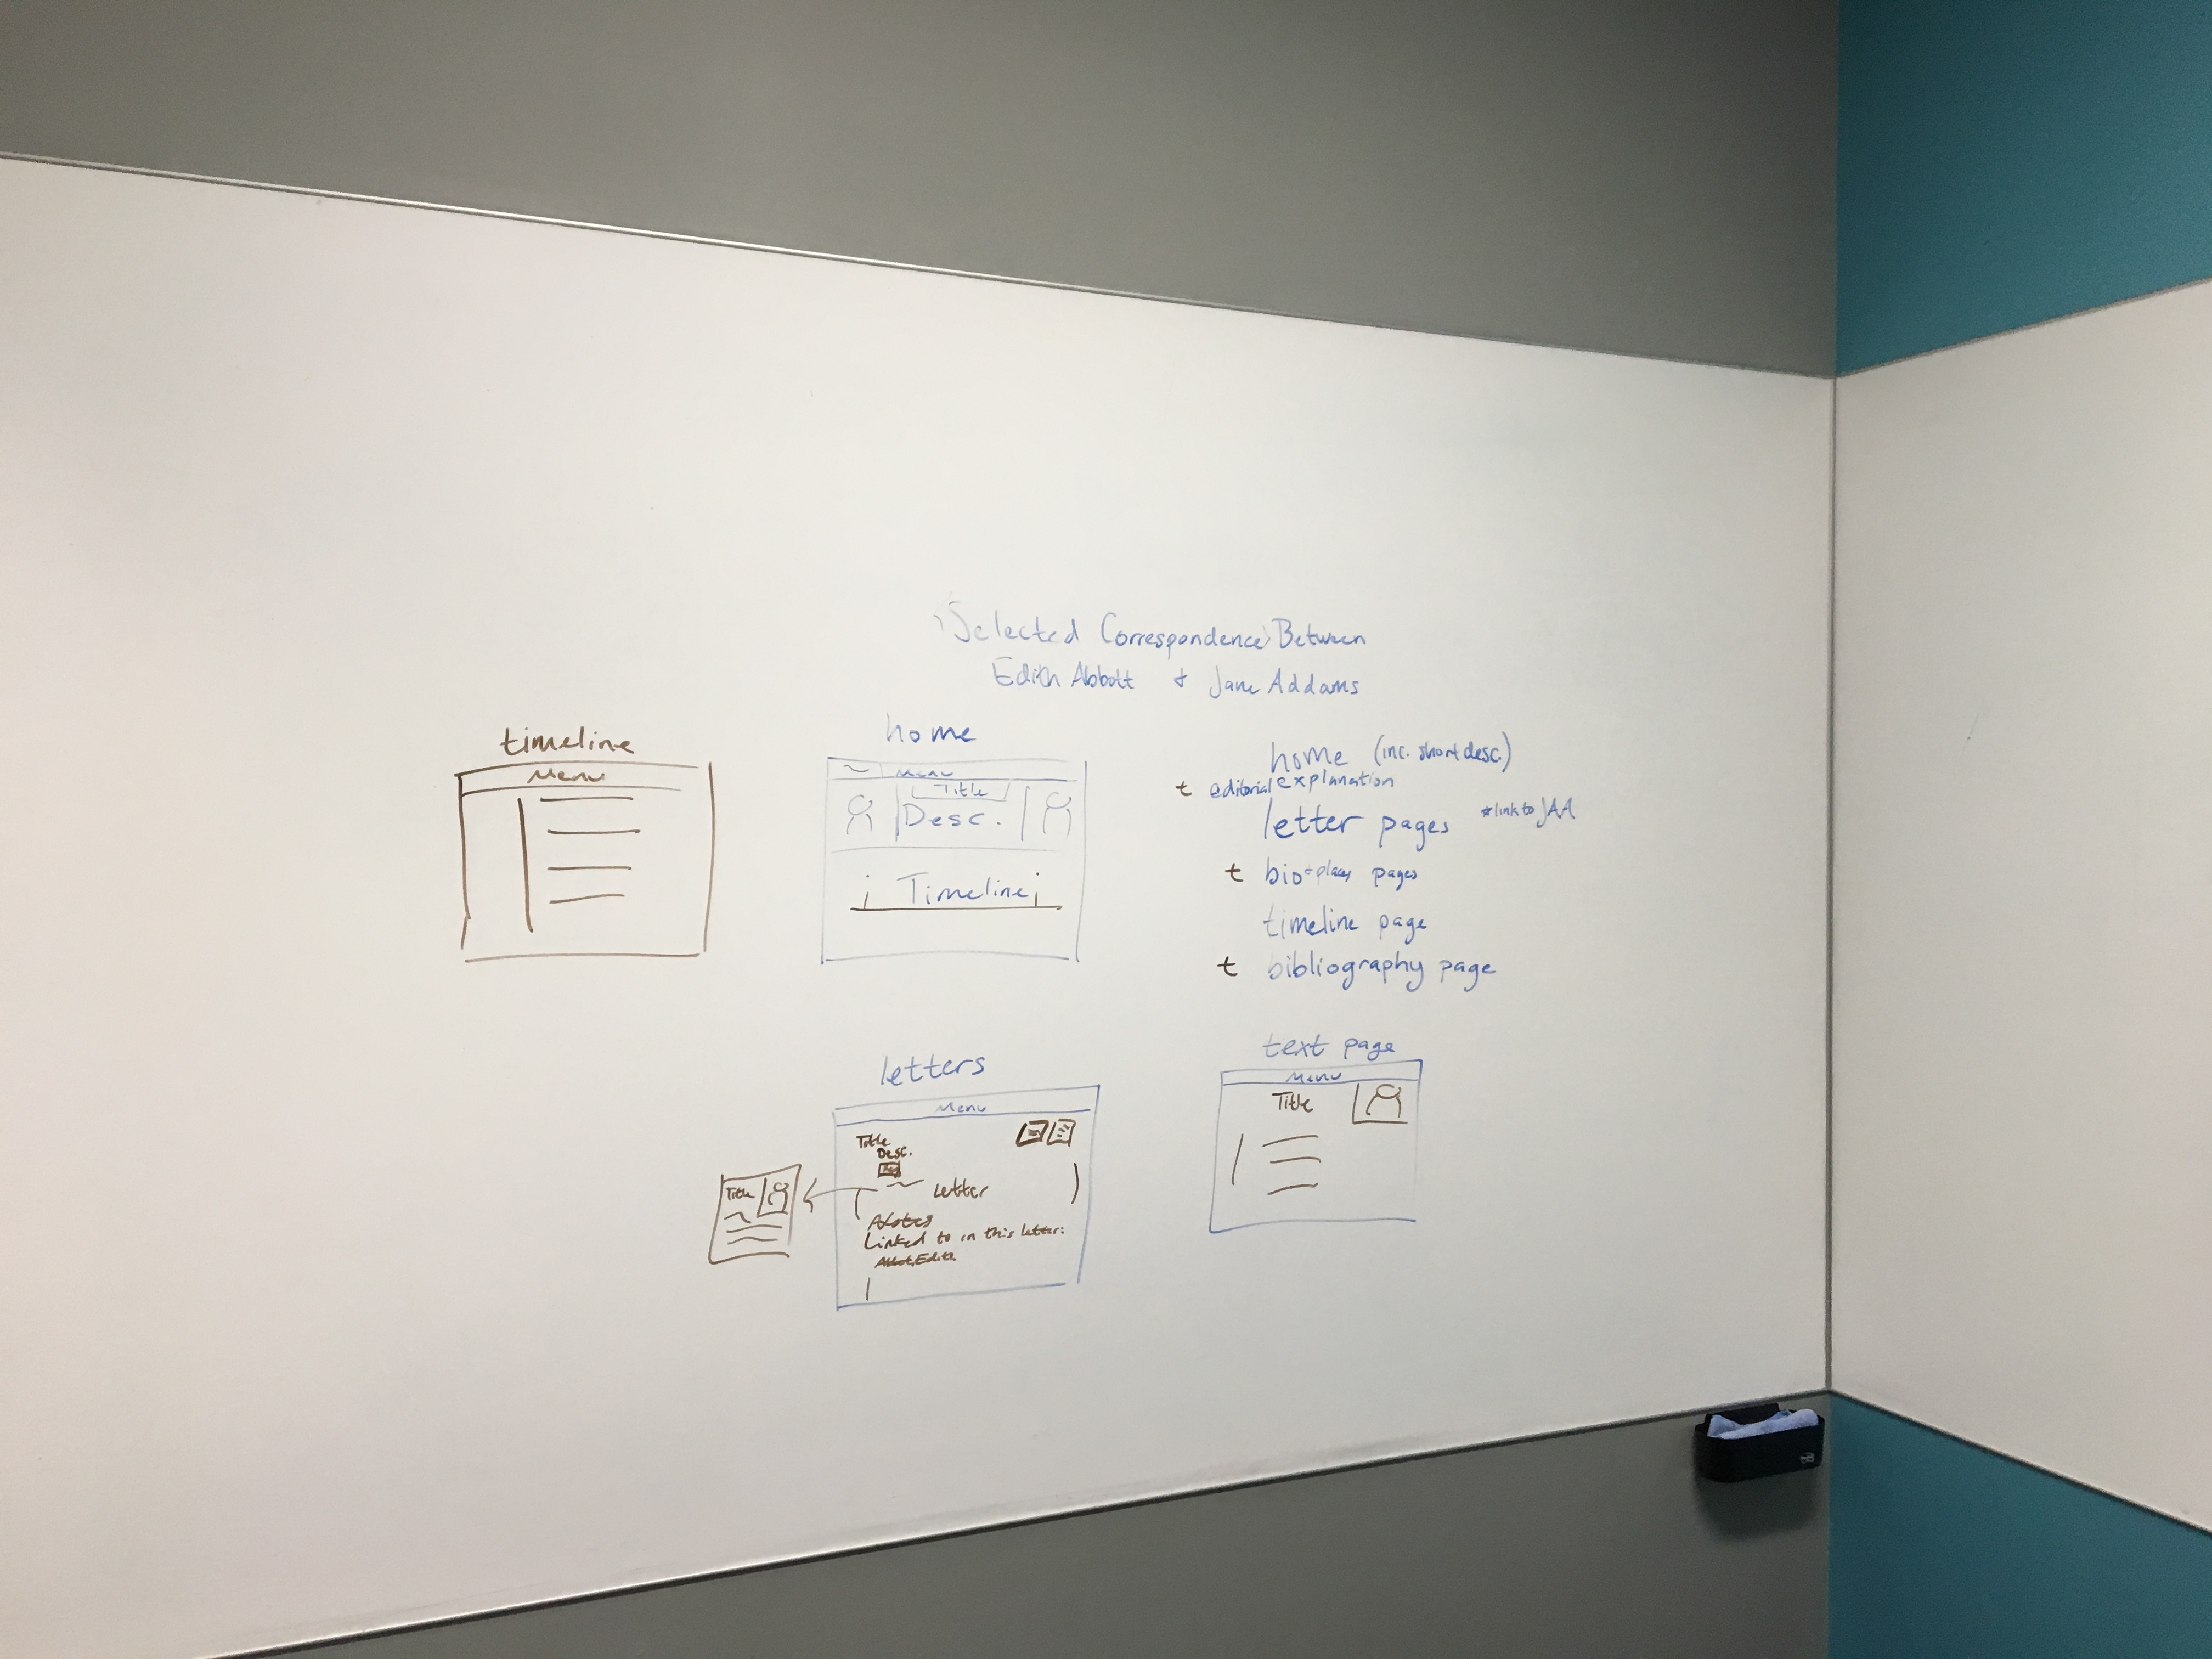 Selected Correspondence Between
Edith Abbott + Jane Addams
timeline
Menu
home
Menu
Title
Desc.
Timeline
home (inc. short desc.)
t editorial explanation
letter pages *link to JAA
t bio + places pages
timeline page
t bibliography page
letters
Menu
Title
Desc.
Letter
Notes
Linked to in this letter:
Abbott, Edith
Title
text page
Menu
Title